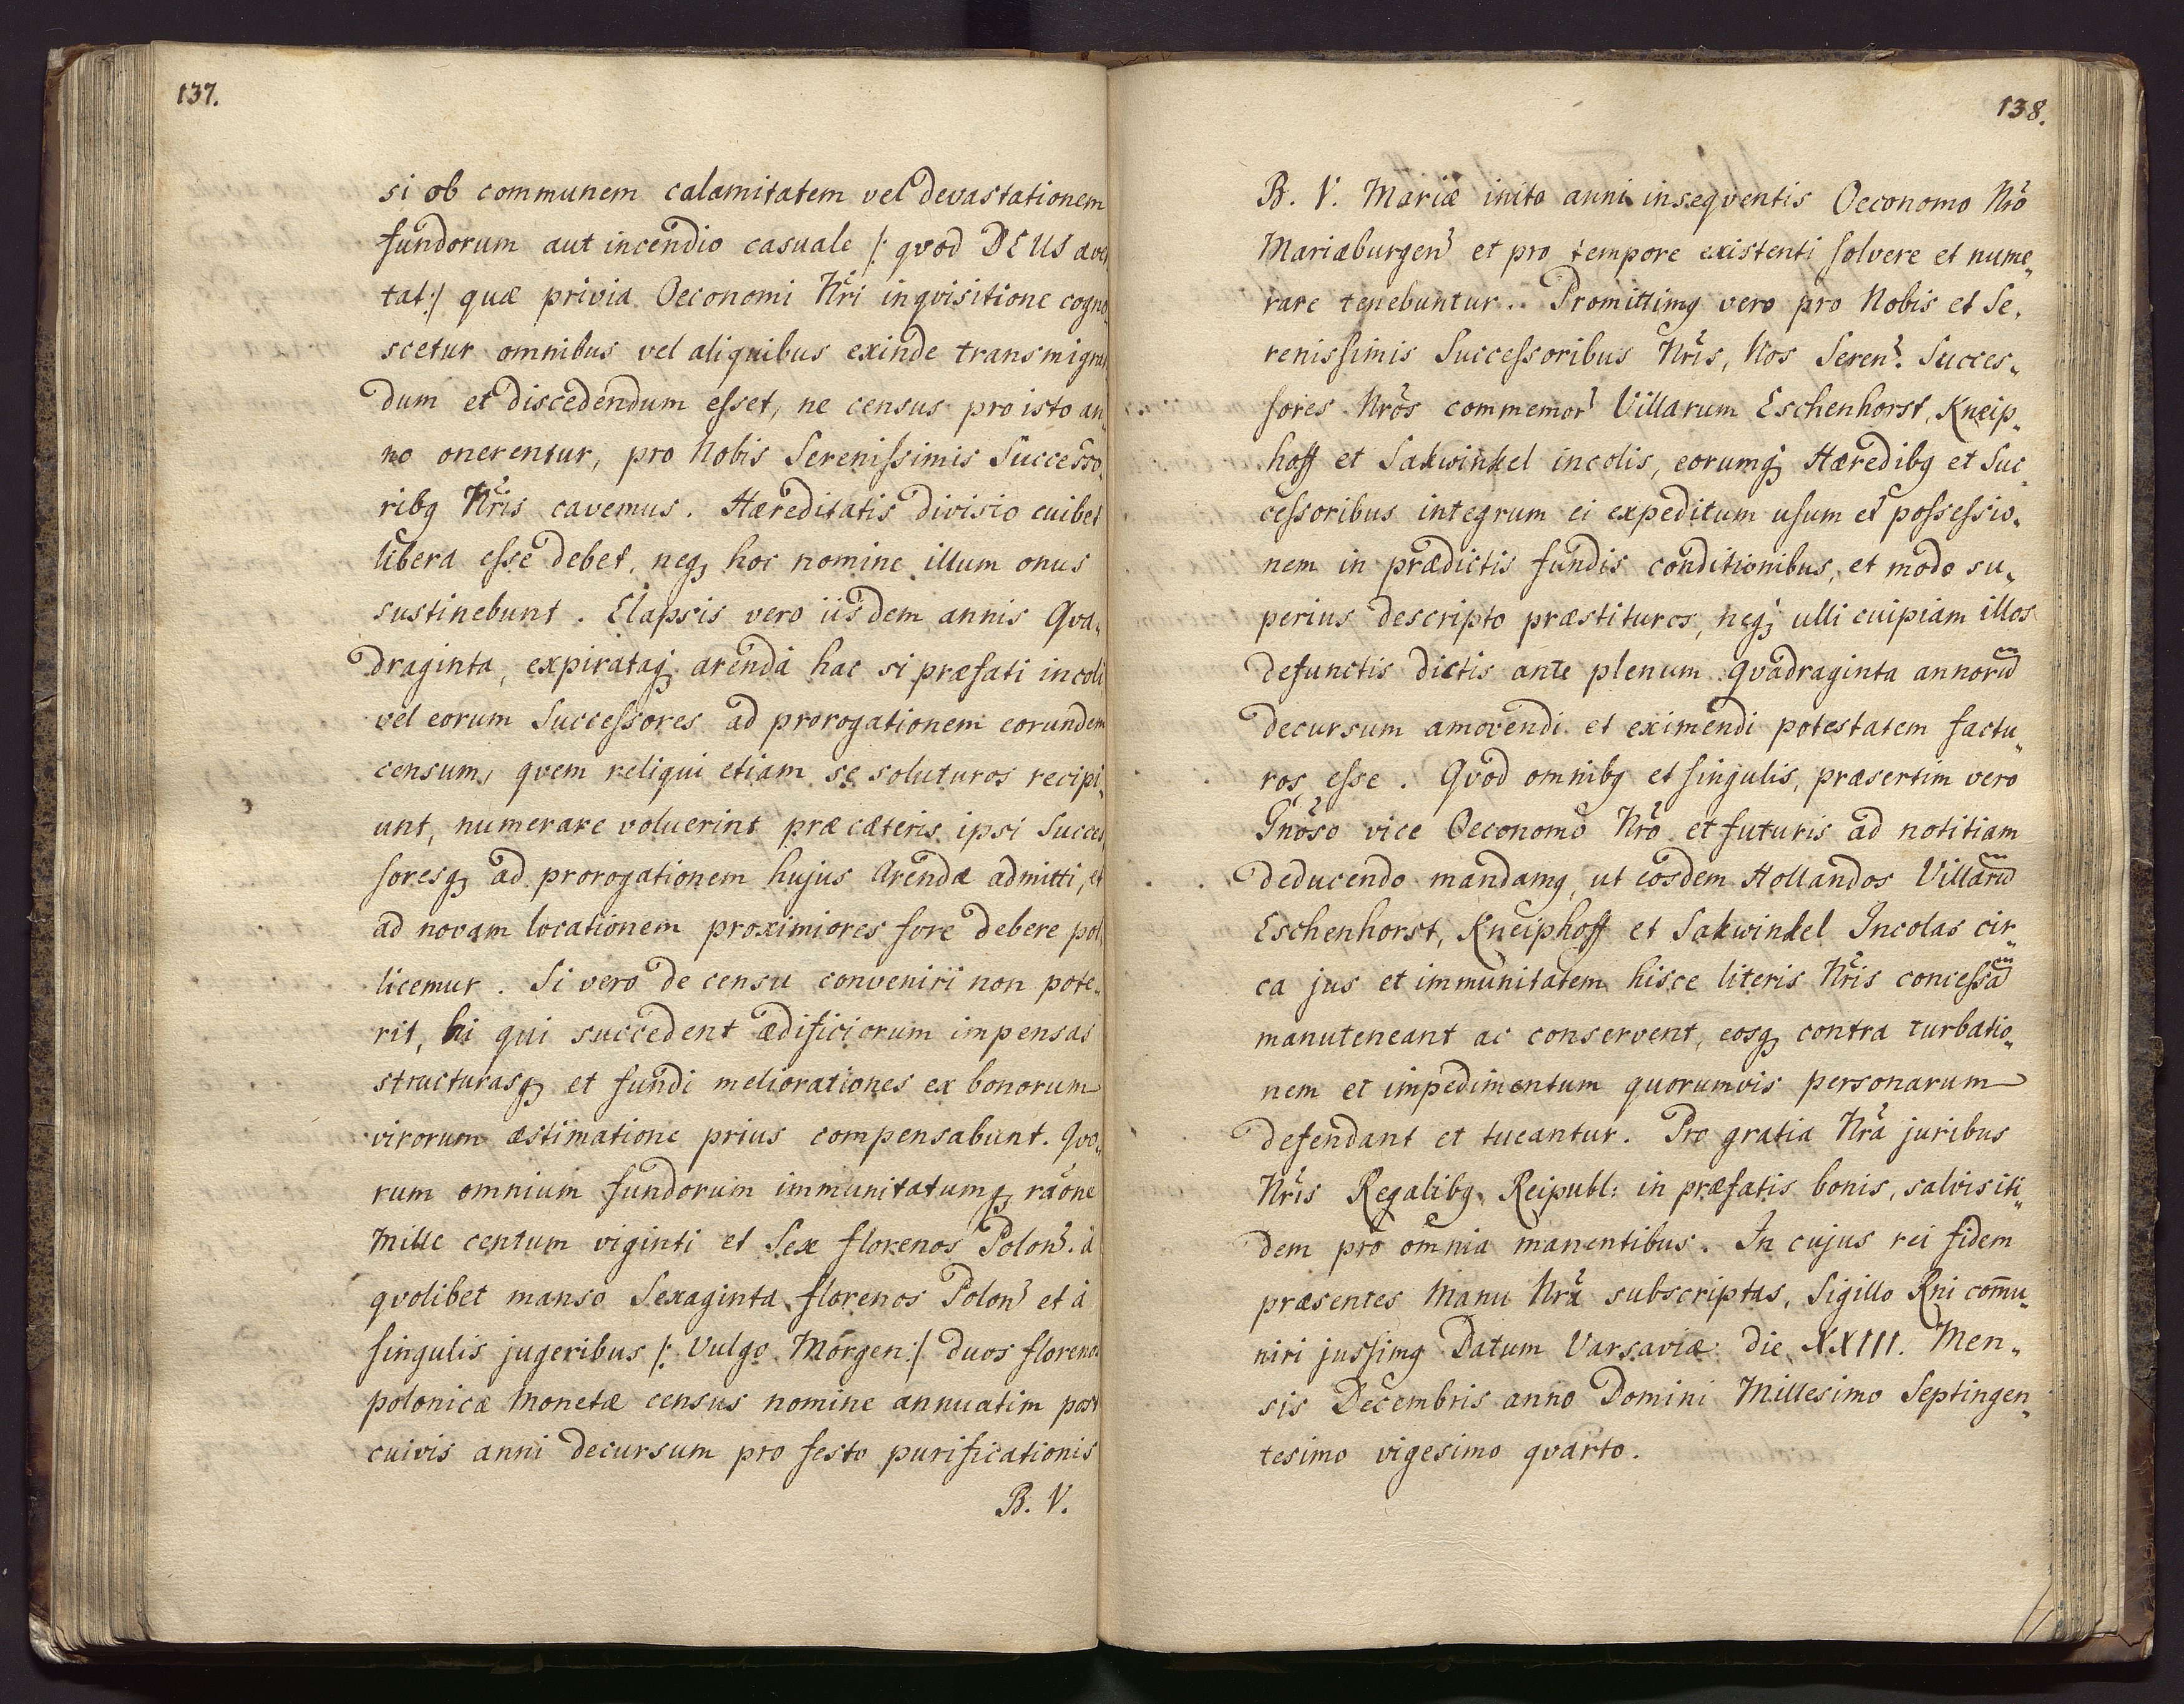 137.
si ob communem calamitatem vel devastationem
fundorum aut incendio casuale /: qvod DEUS aver
tat:/ quæ privia Oeconomi Nri inqvisitione cogno„
scetur omnibus vel aliquibus exinde transmigran„
dum et discedendum esset, ne census pro isto an„
no onerentur, pro Nobis Serenissimis Successo„
ribq Nris cavemus. Hæreditatis divisio cuibet
libera esse debet, neq hoc nomine illum onus
sustinebunt. Elapsis vero iisdem annis Qva„
draginta, expirataq arenda hac si præfati incoli
vel eorum Successores ad prorogationem eorundem
censum, qvem reliqui etiam se soluturos recipi„
unt, numerare voluerint præ cæteris ipsi Succes
soresq ad prorogationem hujus Arendæ admitti, et
ad novam locationem proximiores fore debere pol
licemur. Si vero de censu conveniri non pote„
rit, hi qui succedent ædificiorum impensas
structurasq et fundi meliorationes ex bonorum
virorum æstimatione prius compensabunt. Qvo„
rum omnium fundorum immunitatumq raone
Mille centum viginti et Sex florenos Polon. à
qvolibet manso Sexaginta florenos Polon et à
singulis jugeribus /: Vulgo Morgen:/ duos florenos
polonicæ Monetæ census nomine annuatim post
cuivis anni decursum pro festo purificationis
B. V.
138.
B. V. Mariæ inito anni inseqventis Oeconomo Nro
Mariæburgen et pro tempore existenti solvere et nume„
rare tenebuntur. Promittimq vero pro Nobis et Se„
renissimis Successoribus Nris, Nos Seren. Succes„
sores Nros commemor Villarum Eschenhorst, Kneip„
hoff et Sakwinkel incolis, eorumq Hæredibq et Suc„
cessoribus integrum ei expeditum usum et possessio„
nem in prædictis fundis conditionibus, et modo su„
perius descripto præstituros, neq ulli cuipiam illos
defunctis dictis ante plenum qvadraginta annorum
decursum amovendi et eximendi potestatem factu„
ros esse. Qvod omnibq et singulis, præsertim vero
Gnoso vice Oeconomo Nro et futuris ad notitiam
deducendo mandamq, ut eosdem Hollandos Villarum
Eschenhorst, Kneiphoff et Sakwinkel Incolas cir„
ca jus et immunitatem hisce literis Nris concessam
manuteneant ac conservent, eosq contra turbatio„
nem et impedimentum quorumvis personarum
defendant et tueantur. Pro gratia Nra juribus
Nris Regalibq, Reipubl: in præfatis bonis, salvis iti„
dem pro omnia manentibus. In cujus rei fidem
præsentes Manu Nra subscriptas, Sigillo Rni com̄u„
niri jussimq Datum Varsaviæ die XXIII. Men„
sis Decembris anno Domini Millesimo Septingen„
tesimo vigesimo qvarto.